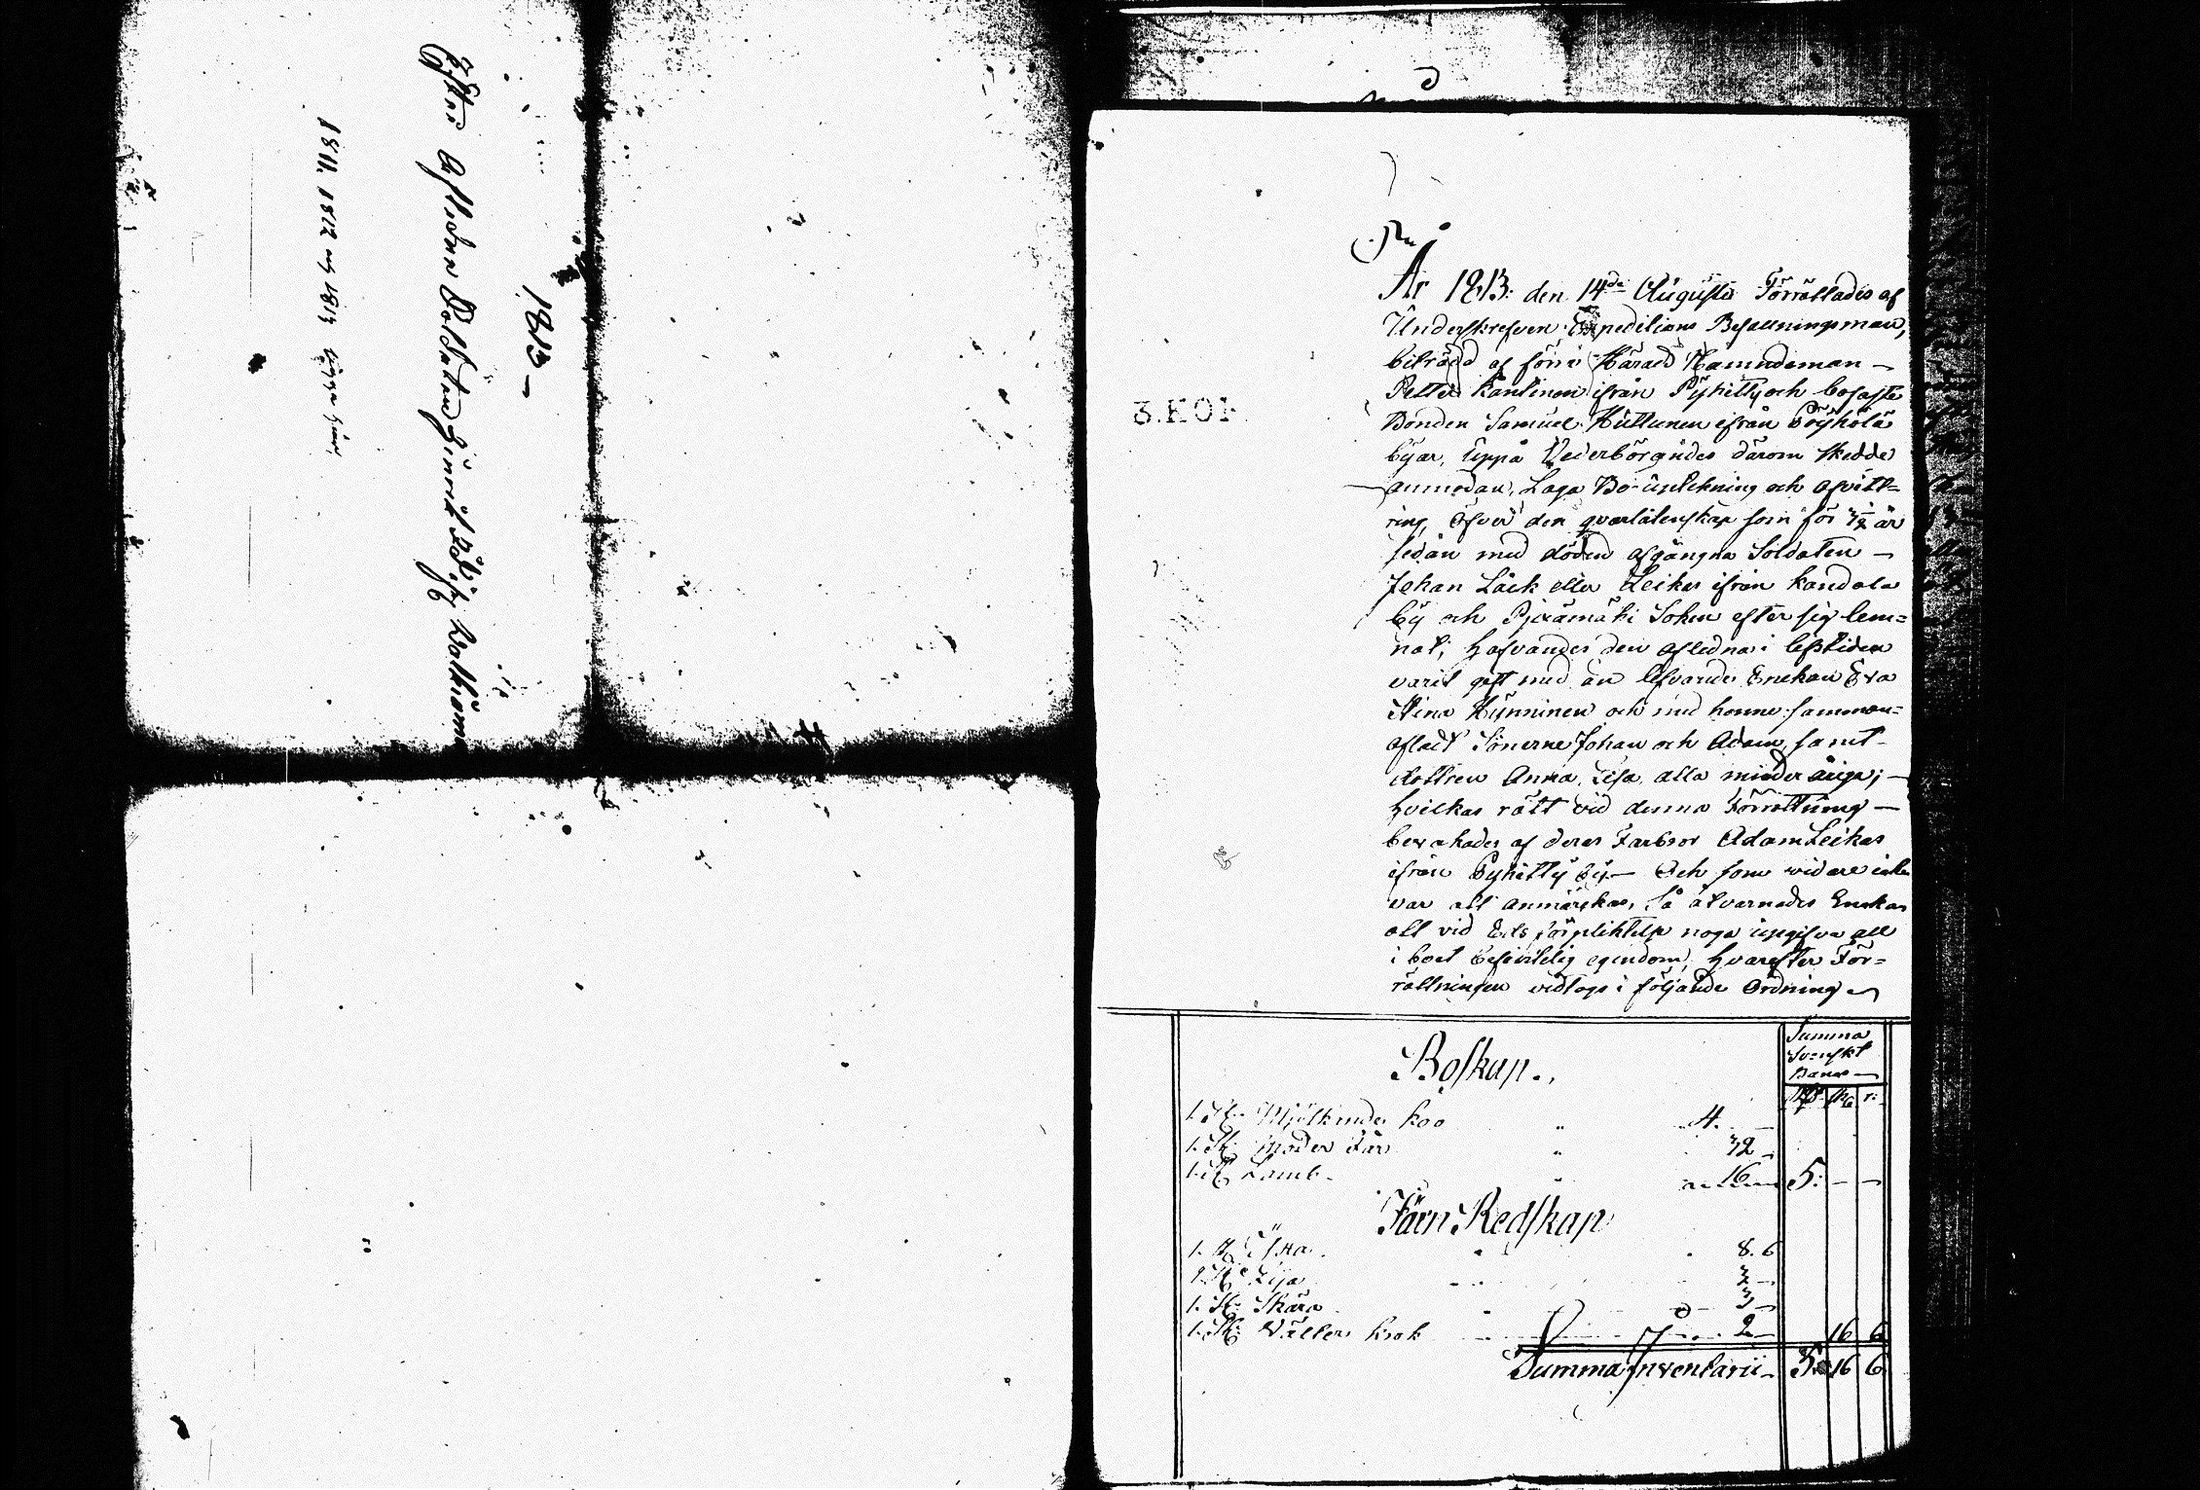 1813 —
Efter Aflidne Soldaten Hinric
1811. 1812 och 1813
3. KOP
År 1813. den 14de Augusti Förrättades af
Underskrefven Expeditions Befallningsman,
biträdd af förre Härads Nämndeman —
Petter Kantinen ifrån Pyhitty och bofaste
Bonden Samuel Huttunen ifrån Pöyhölä
byar, uppå Vederbörandes därom skedde
anmodan, Laga Bo-uptekning och afvitt=
ring, öfver den qvarlåtenskap som för 3 1/2 år
sedan med döden afgångna Soldaten —
Johan Läck eller Leikas ifrån Kandala
by och Pjexämäki Sokn efter sig lem=
nat; hafvandes den aflidna i lifstiden
varit gift med än lefvande Enckan Eva
Stina Hynninen och med henne samman=
afladt Sönerne Johan och Adam, samt
dottren Anna Lisa, alla minderåriga; —
hvilkas rätt vid denna Förrättning —
bevakades af deras Farbror Adam Leikas
ifrån Pyhitty by — Och som widare intet
var att anmärka, så åtvarnades Enckan
att vid Eds förpliktelse noga upgifva all
i boet befintelig egendom, hvarefter För=
rättningen vidtogs i följande Ordning
Summa
Svenskt
Banco —
Boskap.
Rd sk r:
1. St. Mjölkande koo " 4. —
1. St. Moder Får " 32 —
1. St. Lamb — 16 — 5: — —
Järn Redskap
1. St. Yxa 8. 6
1. St. Lija 3 —
1. St. Skära 3 —
1. St. Vällers krok 2 — 16 6
Summa Inventarii — 5. 16 6